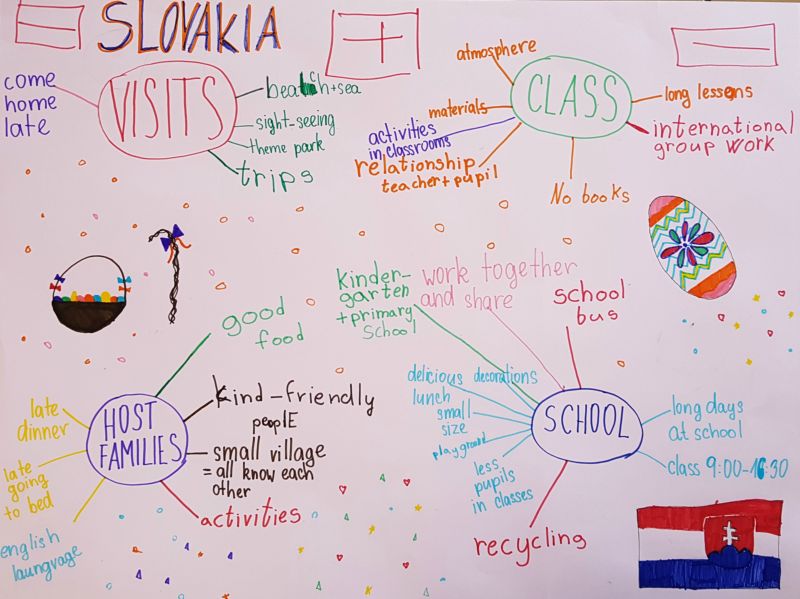 SLOVAKIA
VISITS
come
home
late
beach+sea
sight-seeing
theme park
trips
CLASS
atmosphere
materials
activities
in classrooms
relationship
teacher+pupil
No books
long lessons
international
group work
HOST
FAMILIES
good
food
kind-friendly
peoplE
small village
= all know each
other
activities
late
dinner
late
going
to bed
english
laungvage
SCHOOL
kinder-
garten
+primary
School
work together
and share
school
bus
delicious
lunch
decorations
small
size
playground
less
pupils
in classes
recycling
long days
at school
class 9:00-16:30